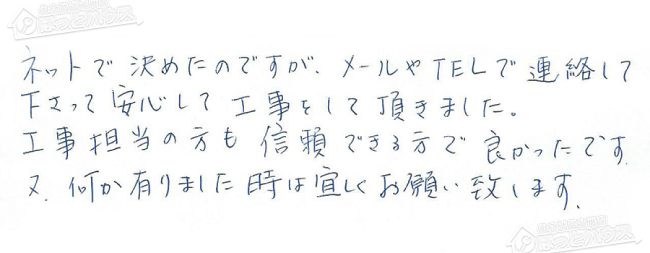 ネットで決めたのですが、メールやTELで連絡して
下さって安心して工事をして頂きました。
工事担当の方も信頼できる方で良かったです
又、何か有りました時は宜しくお願い致します。